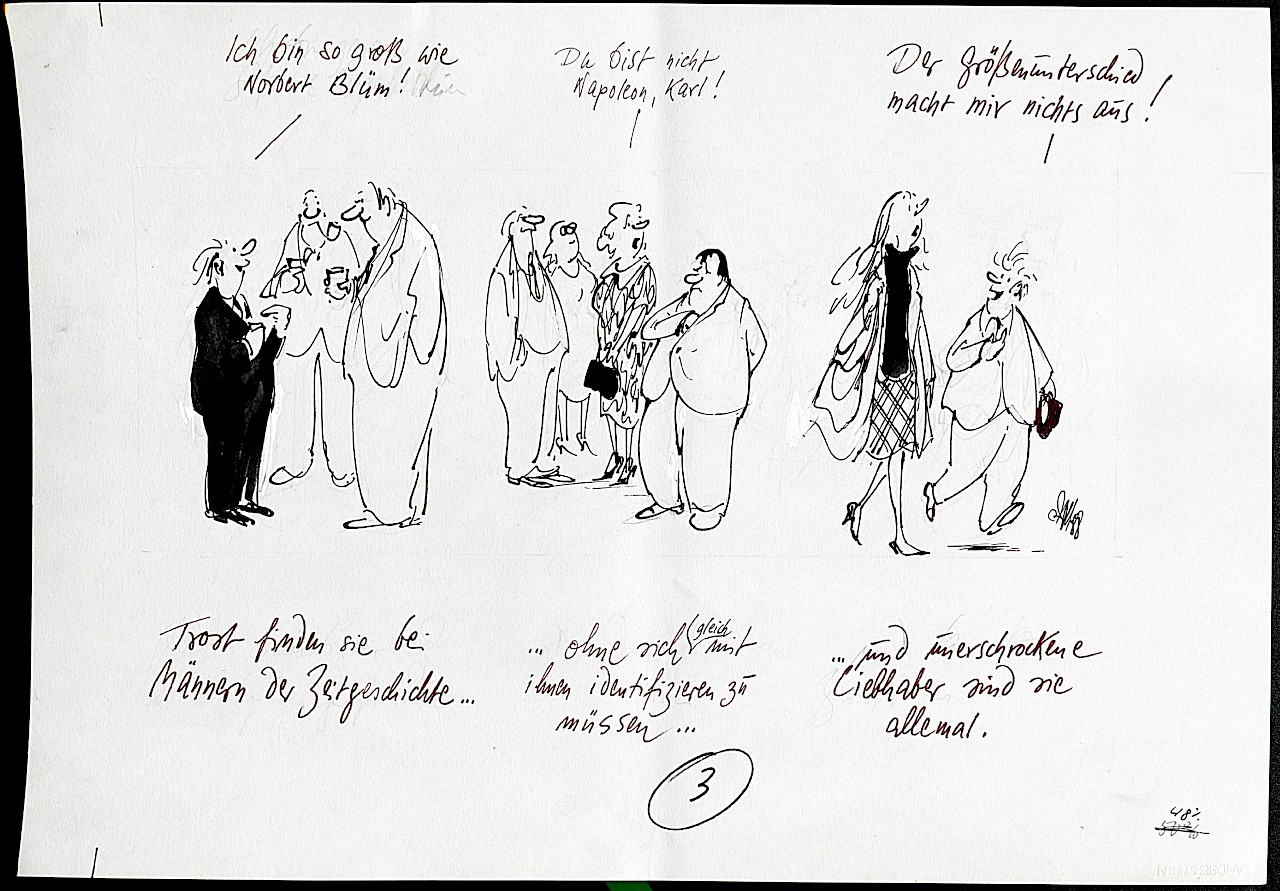 Ich bin so groß wie
Norbert Blüm!
Du bist nicht
Napoleon, Karl!
Der Größenunterschied
macht mir nichts aus!
Trost finden sie bei
Männern der Zeitgeschichte...
... ohne sich (gleich) mit
ihnen identifizieren zu
müssen ...
... und unerschrockene
Liebhaber sind sie
allemal.
3
48%